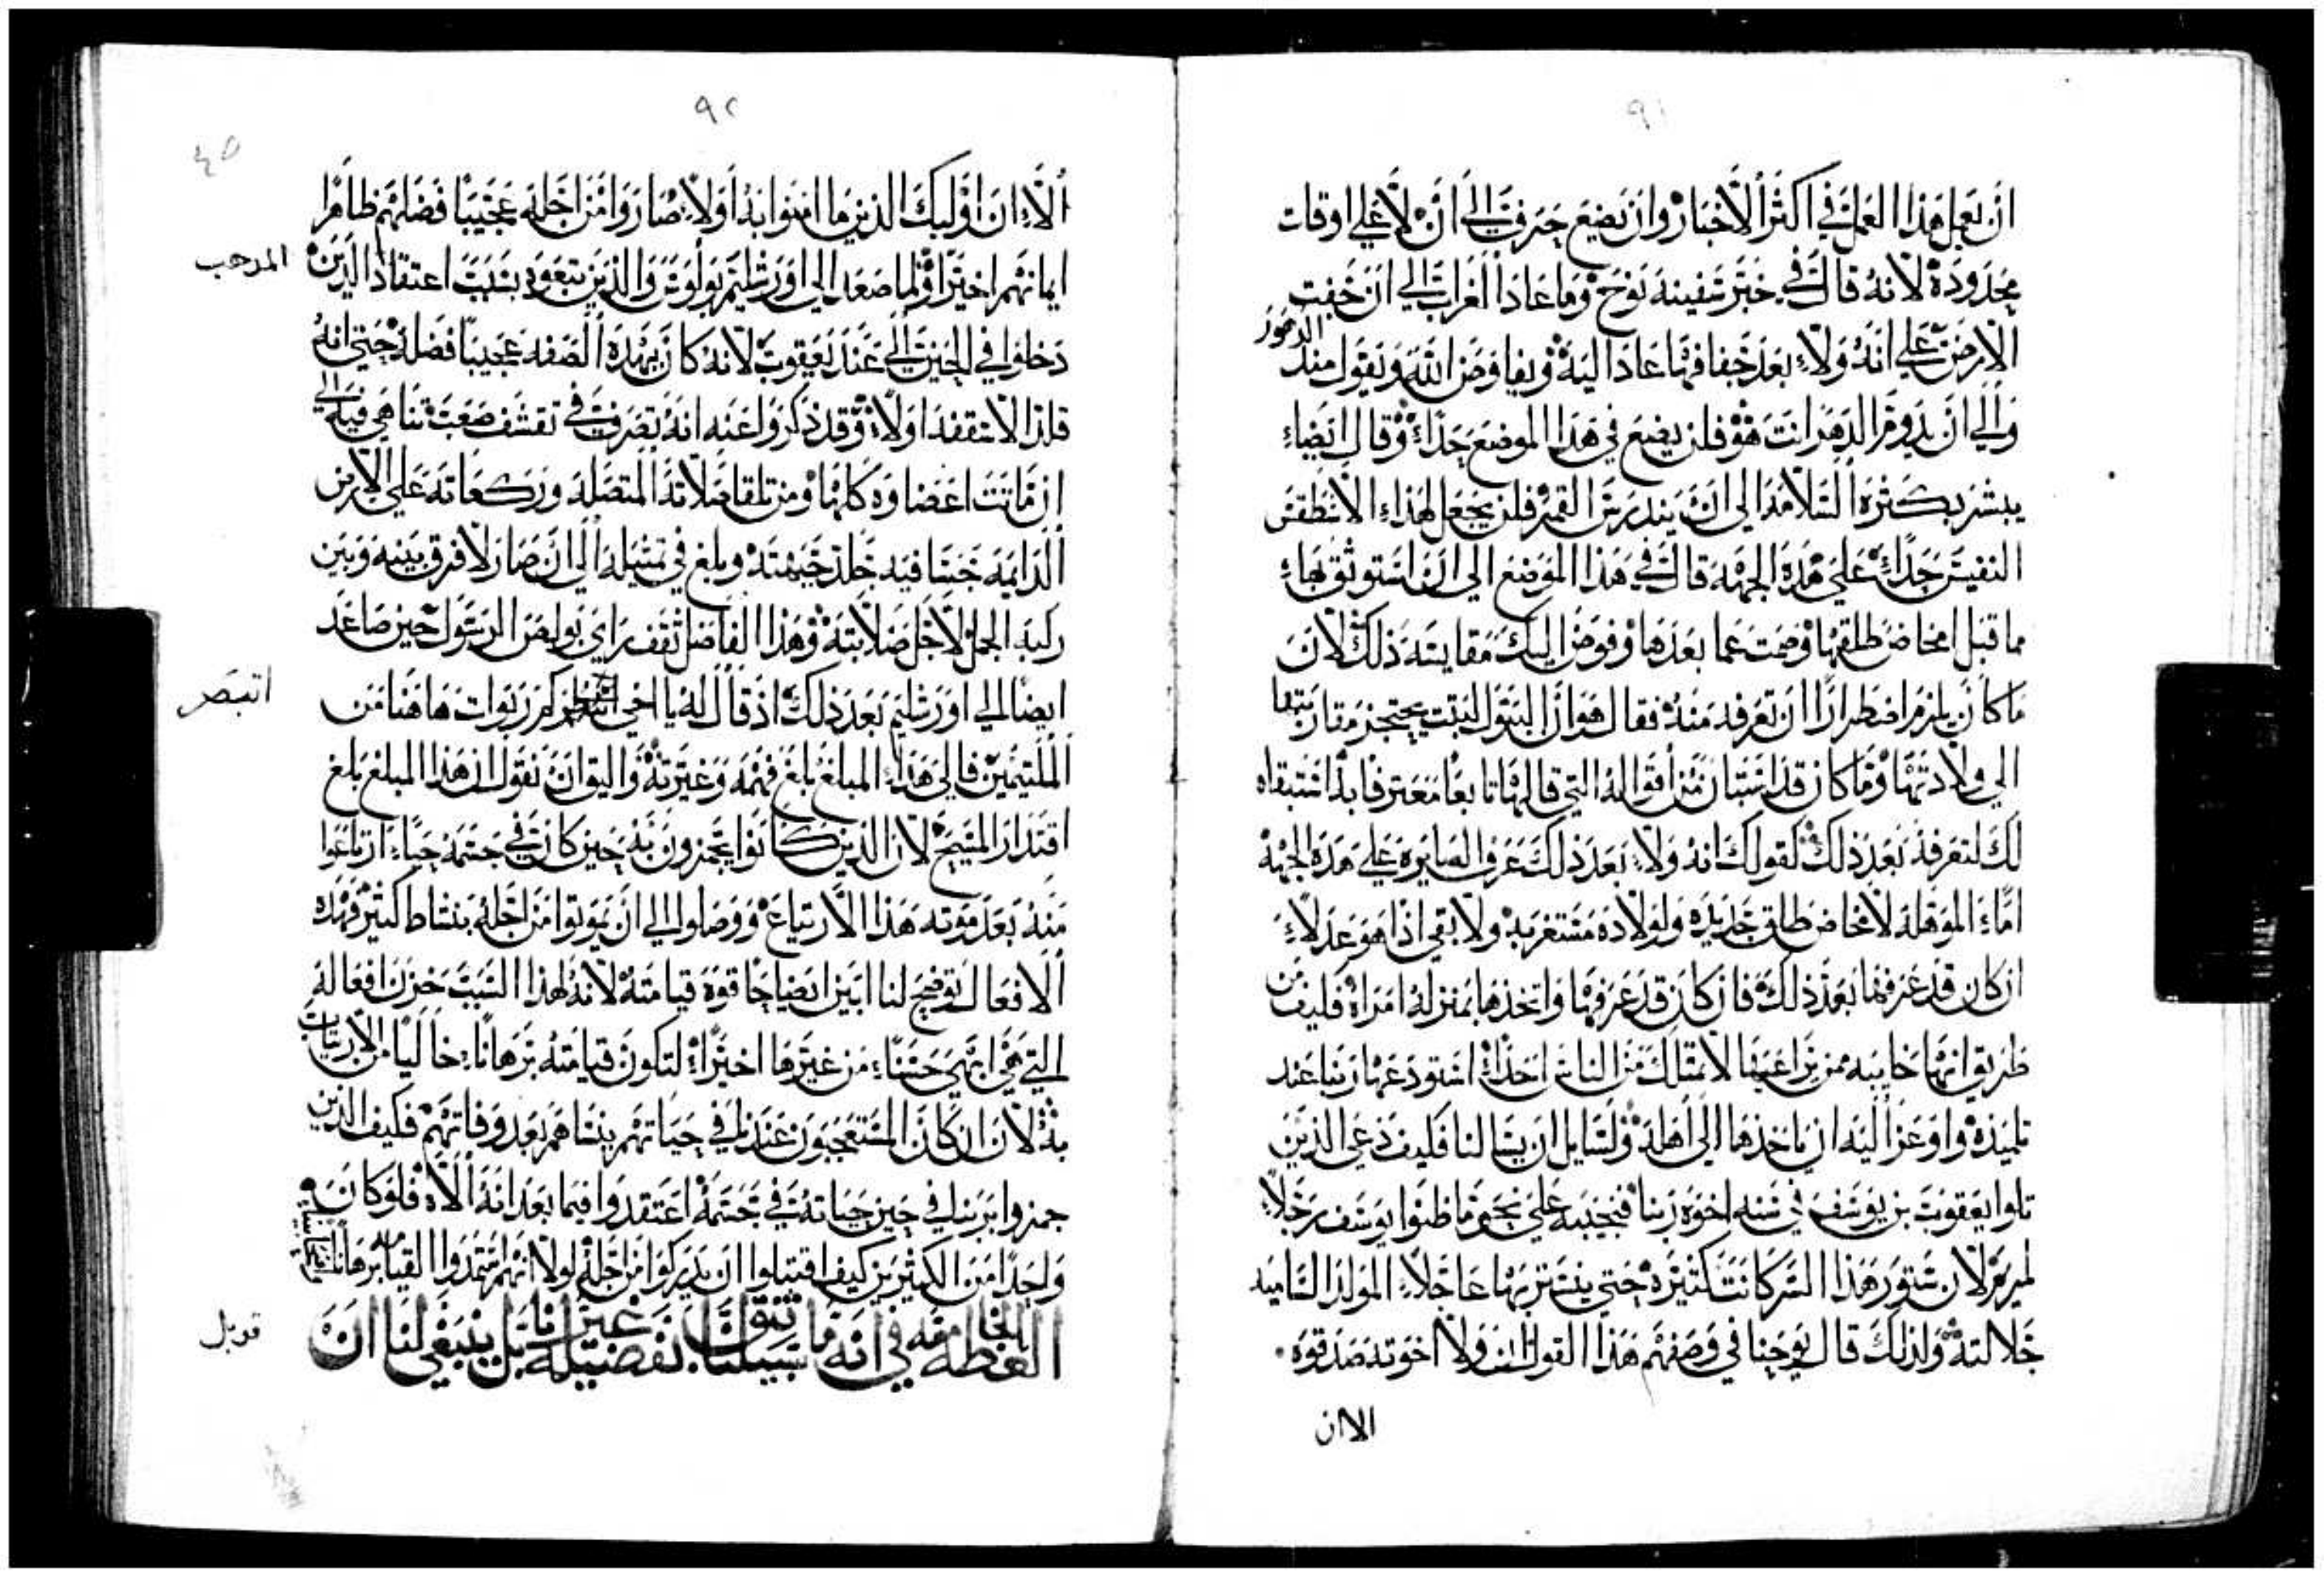 ٩١
ان يعمل هذا العمل في اكثر الاخبار وان يضع حرف الي ان لا علي اوقات
محدودة لانه قال في خبر سفينة نوح وما عاد الغراب الي ان خفت
الارض علي انه ولا بعد خفافها عاد اليه وبفاوض الله ويقول منذ الدهور
والي ان يدوم الدهر انت هو فلن يضع في هذا الموضع حداً وقال ايضاء
يبشر بكثرة السلامه الي ان يندرس القمر فلن يجعل لهذاء الاسطقس
النفيس حداً علي هذه الجهه قال في هذا الموضع الي ان استوثق بهاء
ما قبل امخاض طلقها وصمت عما بعدها وفوض اليك مقايسة ذلك لان
ما كان يلزم اضطراراً ان تعرفه منه فقال هو ان البتول لبثت محتجز مقاربتها
الي ولادتها وما كان قد استبان من اقواله التي قالها تابعاً معترفا به استبقاه
لك لتعرفه بعد ذلك كقولك انه ولا بعد ذلك عرف الصايره علي هذه الجهه
اماً الموهله لامخاض طلق جديده ولولاده مستغربه ولا بقي اذا هو عدلاء
ان كان قد عرفها بعد ذلك فان كان قد عرفها واتخذها بمنزله امراة فكيف من
طريق انها خايبه ممن يراعيها لا تمتلك من الناس احداً استودعها ربنا عند
تلميذه واوعز اليه ان ياخذها الي اهله ولسايل ان يسالنا فكيف دعي الذين
تلوا يعقوب بن يوسف في سنه اخوة ربنا فنجيبه علي نحو ما ظنوا يوسف رجلاً
لمريم لان ستور هذا السر كانت كثيره حتي ينستر بها عاجلاء المولد الساميه
جلالته ولذلك قال يوحنا في وصفهم هذا القول ان ولا اخوته صدقوه
الا ان
٩٢
٤٥
الا ان اوليك الذين ما امنوا به اولا صاروا من اجله عجيباً فضلهم ظاهرا
ايمانهم اخيراً ولما صعد الي اورشليم بولوس والذين تبعوه بسبب اعتقاد الذين
المدهب
دخلوا في الحين الي عند يعقوب لانه كان بهذه الصفه عجيباً فضله حتي انه
قلد الاسقفه اولا وقد ذكروا عنه انه تصرف في تقشف صعب تناهي فيه الي
ان ماتت اعضاوه كلها ومن تلقا صلاته المتصله وركعاته علي الارض
الدايمه خشا فيه جلد جبهته وبلغ في تمثيله الي ان صار لا فرق بينه وبين
ركبه الجمل لاجل صلابته وهذا الفاضل ثقف راي بولص الرسول حين صاعد
ايضا الي اورشليم بعد ذلك اذ قال له يا اخي كم ربوات ها هنا من
اتبصر
الملتيمين فالي هذاء المبلغ بلغ فهمه وغيرته واليق ان نقول ان هذا المبلغ بلغ
اقتدار المسيح لان الذين كانوا يجمزون به حين كان في جسمه حياً ارتاعوا
منه بعد موته هذا الارتياع ووصلوا الي ان يموتوا من اجله بنشاط كثير فهذه
الافعال توضح لنا ابين ايضاحا قوة قيامته لانه لهذا السبب خزن افعاله
التي هي ابهي حسناء من غيرها اخيراً لتكون قيامته برهاناً خاليا من الارتياب
به لان ان كان المستعجبون عندنا في حياتهم ينساهم بعد وفاتهم فكيف الذين
جمزوا بربنا في حين حياته في جسمه اعتقدوا فيما بعد انه الاه فلو كان
واحداً من الكثيرين كيف اقتبلوا ان يدركوا من اجله لولا انهم استمدوا القيامه برهاناً
العظه الخامسه في انه ما سبيلنا ان نثق بفضيلة غيرنا بل ينبغي لنا ان
قوبل